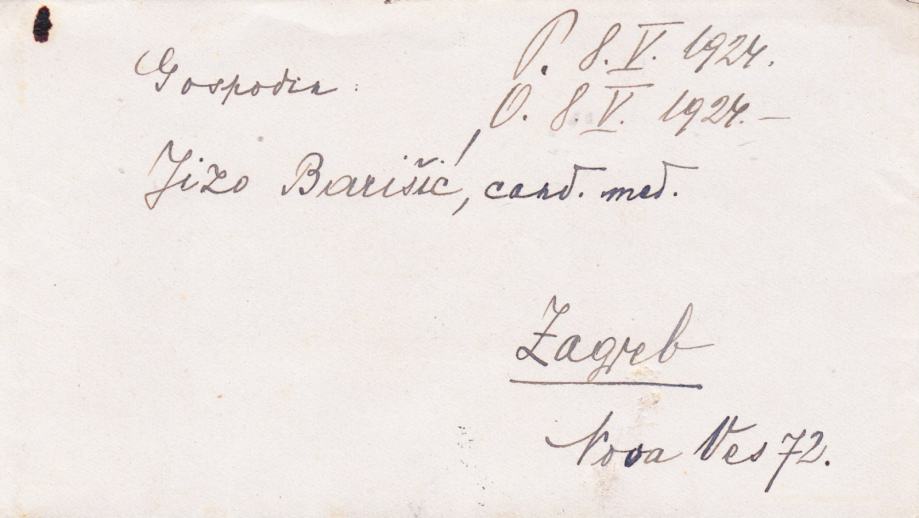 Gospodin:
P. 8. V. 1924.
O. 8. V. 1924.–
Jizo Barišić, cand. med.
Zagreb
Nova Ves 72.